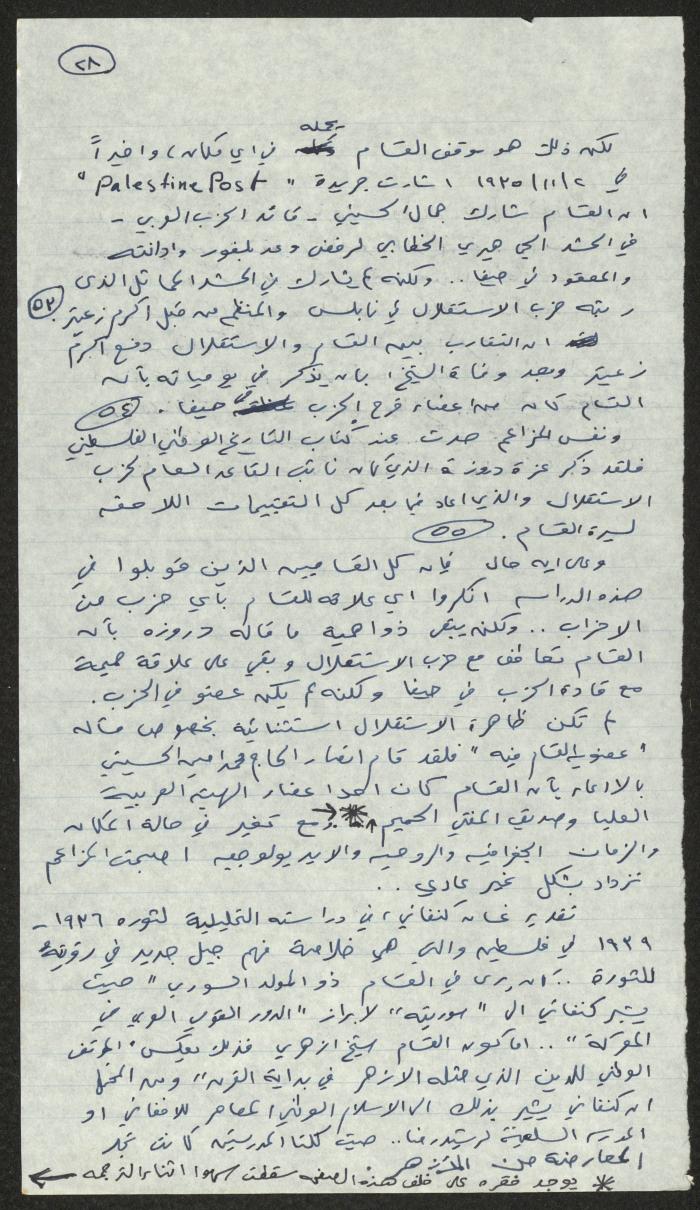 ٢٨
يجعله
لكن ذلك هو موقف القسام في اي مكان، واخيراً
في ١٩٣٥/١١/٢ اشارت جريدة "Palestine Post"
ان القسام شارك جمال الحسيني - قائد الحزب العربي -
في الحشد الخطابي لرفض وعد بلفور وادانته
والمعقود في حيفا .. ولكنه لم يشارك في الحشد المماثل الذي
رتبه حزب الاستقلال في نابلس والمنظم من قبل اكرم زعيتر ٥٣
ان التقارب بين القسام والاستقلال دفع اكرم
زعيتر وبعد وفاة الشيخ، بان يذكر في يومياته بأن
القسام كان من اعضاء فرع الحزب في حيفا. ٥٤
ونفس المزاعم صدرت عند كتاب التاريخ الوطني الفلسطيني
فلقد ذكر عزة دروزة الذي كان نائب القائد العام لحزب
الاستقلال والذي اعاد فيما بعد كل التقييمات اللاحقه
لسيرة القسام. ٥٥
وعلى ايه حال فإن كل القساميين الذين قوبلوا في
هذه الدراسه انكروا اي علاقه للقسام بأي حزب من
الاحزاب .. ولكن يبقى ذو اهمية ما قاله دروزه بأن
القسام تعاطف مع حزب الاستقلال وبقي على علاقة حميمة
مع قادة الحزب في حيفا ولكنه لم يكن عضو في الحزب.
لم تكن ظاهرة الاستقلال استثنائية بخصوص مقاله
"عضوية القسام فيه" فلقد قام انصار الحاج محمد امين الحسيني
بالادعاء بأن القسام كان احد اعضاء الهيئه العربية
العليا وصديق المفتي الحميم * مع تغير في حالة المكان
والزمان الجغرافيه والروحيه والايديولوجيه اصبحت المزاعم
تزداد بشكل غير عادي ..
تقدير غسان كنفاني، في دراسته التحليلية لثوره ١٩٣٦-
١٩٣٩ في فلسطين والتي هي خلاصة فهم جيل جديد في رؤيته
للثورة .. ان يرى في القسام ذو المولد السوري" حيث
يشير كنفاني الى "سوريته" لابراز "الدور القومي العربي في
المعركة" .. اما كون القسام شيخ ازهري فذلك يعكس "الموقف
الوطني للدين الذي مثله الازهر في بداية القرن" ومن المحتمل
ان كنفاني يشير بذلك الى الاسلام الوطني المعاصر للافغاني او
المدرسه السلفية لرشيد رضا .. حيث كلتا المدرستين كانت تجد
المعارضة من الازهر
* يوجد فقره على خلف هذه الصفحه سقطت سهوا اثناء الترجمه ←